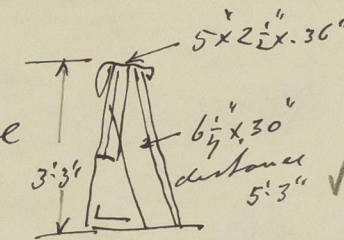 5" x 2½" x .36"
e
6¼" x .30"
3'.3"
distance
5'.3" ✓